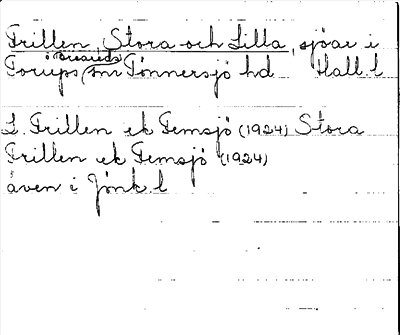 Trillen, Stora och Lilla, sjöar i
Torups o. Breareds snr Tönnersjö hd Hall. l
L. Trillen ek Femsjö (1924) Stora
Trillen ek Femsjö (1924)
även i Jönk. l